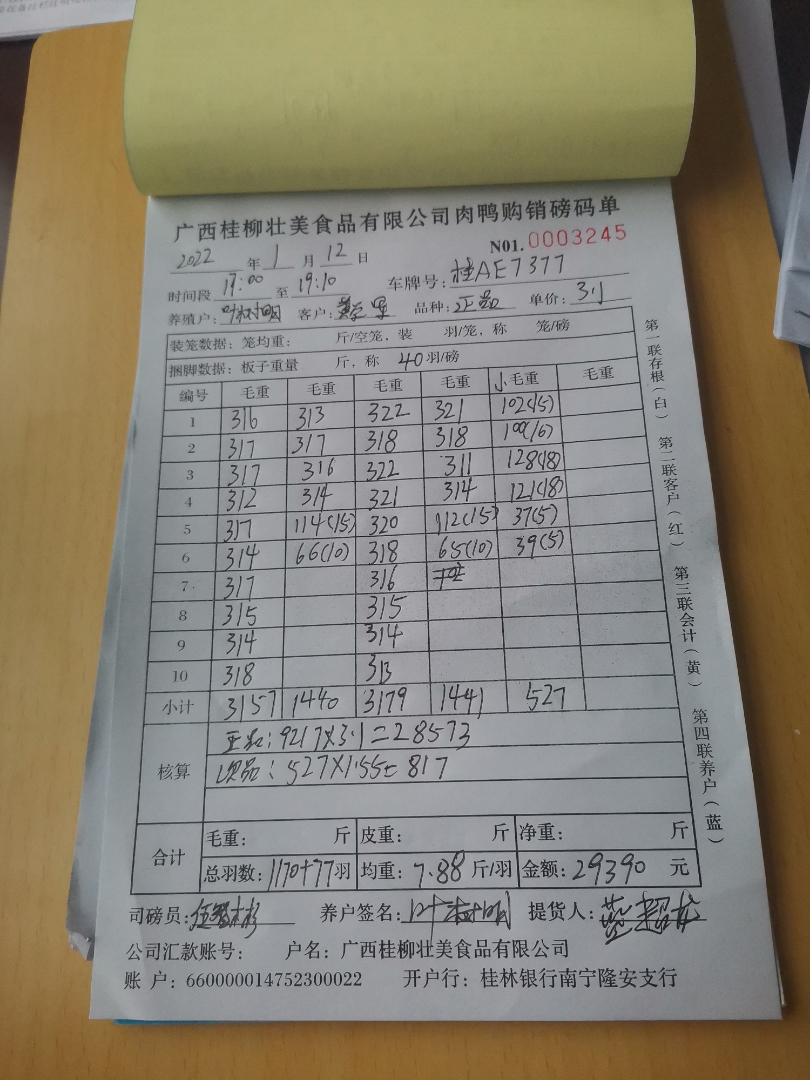 广西桂柳壮美食品有限公司肉鸭购销磅码单
NO1. 0003245
2022 年 1 月 12 日
时间段 17:00 至 19:10 车牌号: 桂AE7377
养殖户: 叶树明 客户: 品种: 正品 单价: 3.1
装笼数据: 笼均重: 斤/空笼, 装 羽/笼, 称 笼/磅
捆脚数据: 板子重量 斤, 称 40 羽/磅
编号 毛重 毛重 毛重 毛重 小毛重 毛重
1 316 313 322 321 102(15)
2 317 317 318 318 100(16)
3 317 316 322 311 128(18)
4 312 314 321 314 121(18)
5 317 114(15) 320 112(15) 37(5)
6 314 66(10) 318 65(10) 39(5)
7 317 316
8 315 315
9 314 314
10 318 313
小计 3157 1440 3179 1441 527
核算 正品: 9217×3.1=28573
次品: 527×1.55=817
合计 毛重: 斤 皮重: 斤 净重: 斤
总羽数: 1170+77 羽 均重: 7.88 斤/羽 金额: 29390 元
司磅员: 养户签名: 叶树明 提货人:
公司汇款账号: 户名: 广西桂柳壮美食品有限公司
账 户: 660000014752300022 开户行: 桂林银行南宁隆安支行
第一联存根(白) 第二联客户(红) 第三联会计(黄) 第四联养户(蓝)